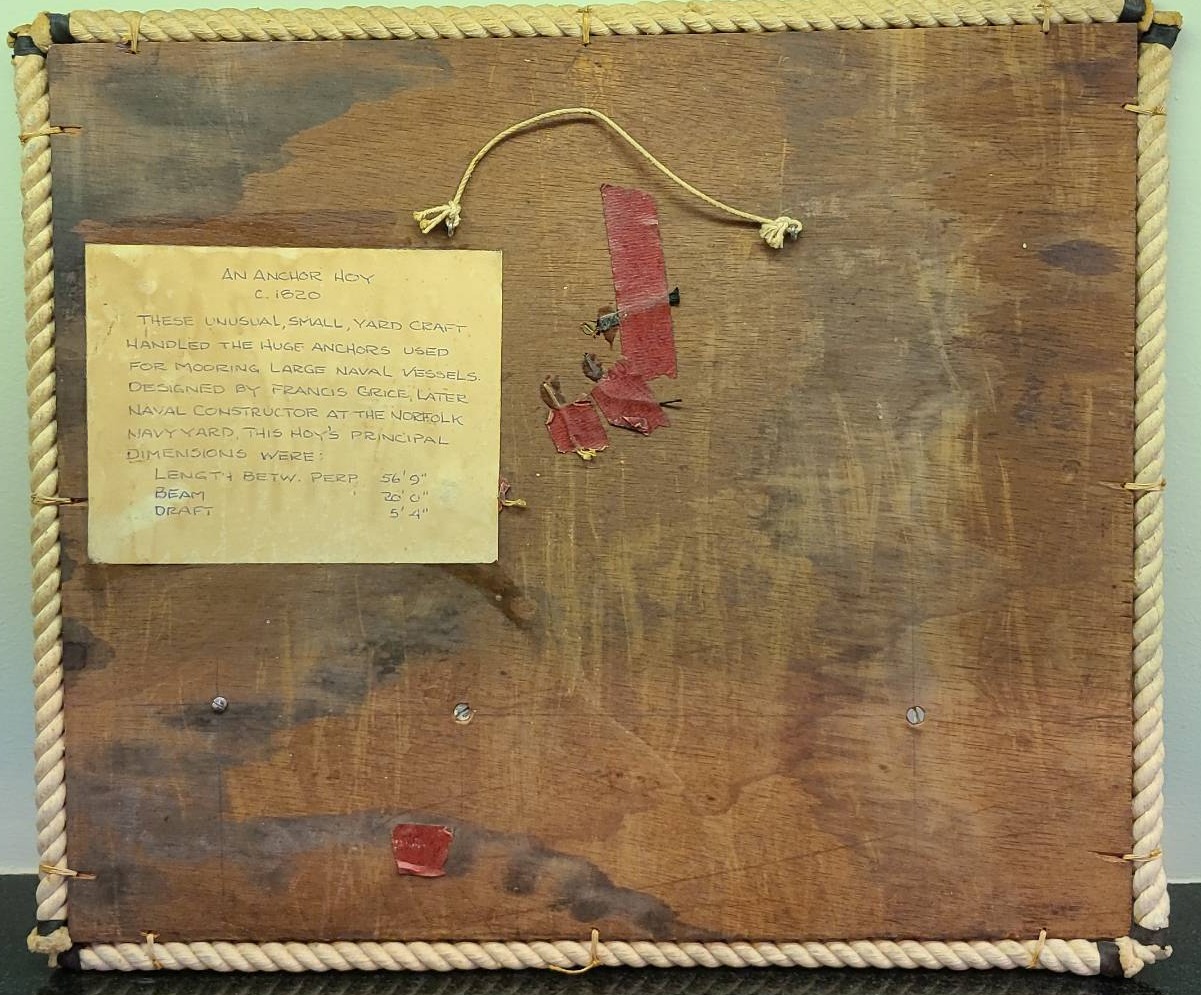 AN ANCHOR HOY
C. 1820
THESE UNUSUAL, SMALL, YARD CRAFT
HANDLED THE HUGE ANCHORS USED
FOR MOORING LARGE NAVAL VESSELS.
DESIGNED BY FRANCIS GRICE, LATER
NAVAL CONSTRUCTOR AT THE NORFOLK
NAVY YARD, THIS HOY'S PRINCIPAL
DIMENSIONS WERE:
LENGTH BETW. PERP. 56' 9"
BEAM 20' 0"
DRAFT 5' 4"